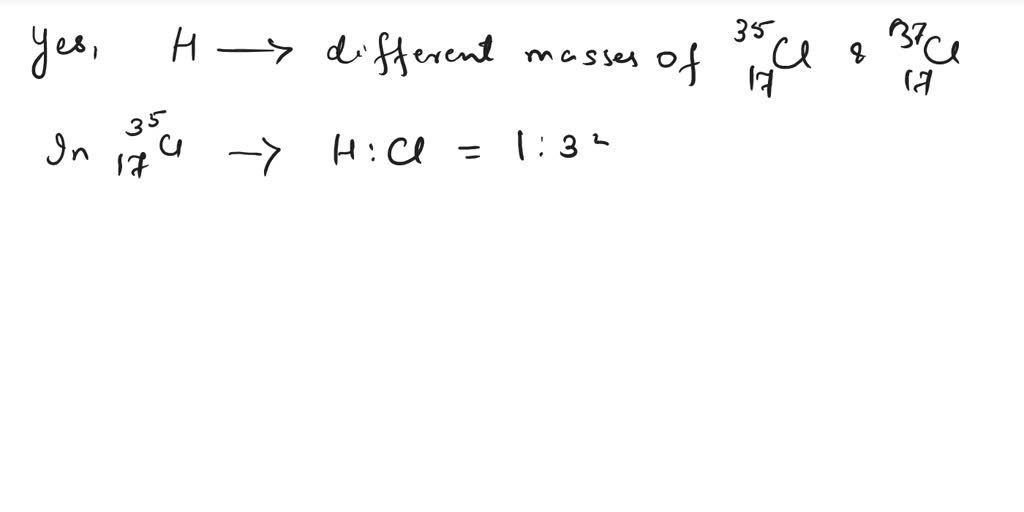 Yes, H → different masses of ³⁵₁₇Cl & ³⁷₁₇Cl
In ³⁵₁₇Cl → H:Cl = 1:3